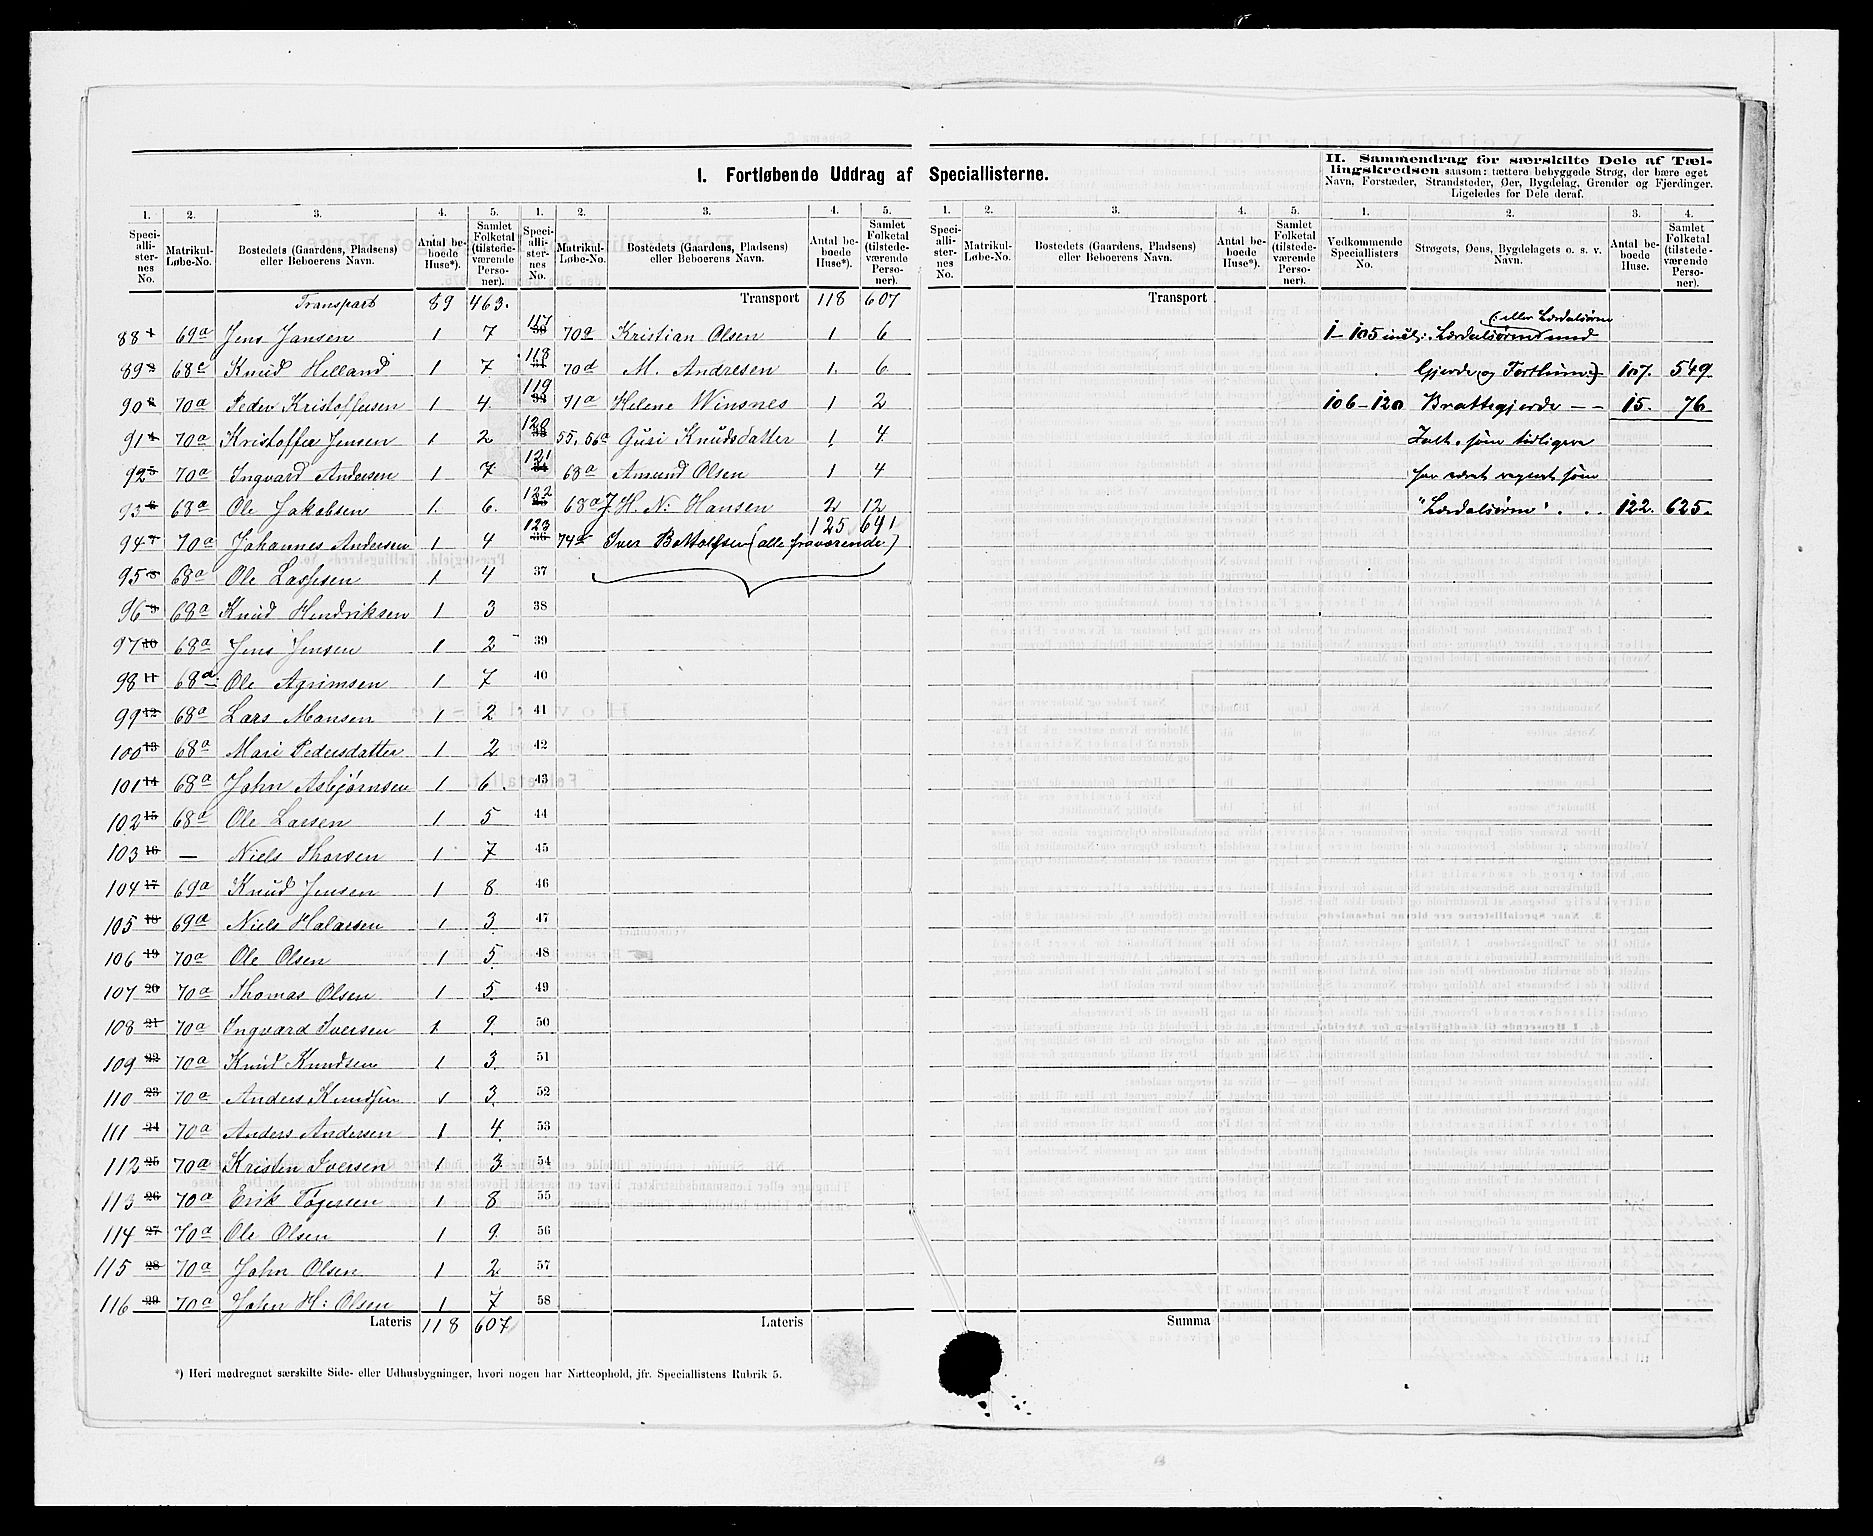 I. Fortløbende Uddrag af Speciallisterne.
II. Sammendrag for særskilte Dele af Tællingskredsen saasom: tættere bebyggede Strøg, der bære eget
Navn, Forstæder, Strandsteder, Øer, Bygdelag, Grender og Fjerdinger.
Ligeledes for Dele deraf.
1. 2. 3. 4. 5.
Speciallisternes No. Matrikul-Løbe-No. Bostedets (Gaardens, Pladsens) eller Beboerens Navn. Antal beboede Huse*). Samlet Folketal (tilstedeværende Personer).
Transport 89 463.
88 1 69a Jens Jansen 1 7
89 2 68c Knud Helland 1 7
90 3 70a Peder Kristoffersen 1 4
91 4 70a Kristoffer Jensen 1 2
92 5 70a Ingvard Andersen 1 7
93 6 68a Ole Jakobsen 1 6
94 7 70a Johannes Andersen 1 4
95 8 68a Ole Lassesen 1 4
96 9 68a Knud Hendriksen 1 3
97 10 68a Jens Jensen 1 2
98 11 68a Ole Agrimsen 1 7
99 12 68a Lars Monsen 1 2
100 13 68a Mari Pedersdatter 1 2
101 14 68a John Asbjørnsen 1 6
102 15 68a Ole Larsen 1 5
103 16 — Niels Thorsen 1 7
104 17 69a Knud Jensen 1 8
105 18 69a Niels Halarsen 1 3
106 19 70a Ole Olsen 1 5
107 20 70a Thomas Olsen 1 5
108 21 70a Ingvard Iversen 1 9
109 22 70a Knud Knudsen 1 3
110 23 70a Anders Knudsen 1 3
111 24 70a Anders Andersen 1 4
112 25 70a Kristen Iversen 1 3
113 26 70a Erik Tøgersen 1 8
114 27 70a Ole Olsen 1 9
115 28 70a John Olsen 1 2
116 29 70a John H: Olsen 1 7
Lateris 118 607
*) Heri medregnet særskilte Side- eller Udhusbygninger, hvori nogen har Natteophold, jfr. Speciallistens Rubrik 5.
1. 2. 3. 4. 5.
Speciallisternes No. Matrikul-Løbe-No. Bostedets (Gaardens, Pladsens) eller Beboerens Navn. Antal beboede Huse*). Samlet Folketal (tilstedeværende Personer).
Transport 118 607
117 30 70a Kristian Olsen 1 6
118 31 70d M. Andresen 1 6
119 32 71a Helene Winsnes 1 2
120 33 55, 56a Guri Knudsdatter 1 4
121 34 68a Amund Olsen 1 4
122 35 68a J. H. N: Hansen 2 12
125 641
123 36 74a Iver Bottolfsen (alle fraværende)
37
38
39
40
41
42
43
44
45
46
47
48
49
50
51
52
53
54
55
56
57
58
Lateris
1. 2. 3. 4. 5.
Speciallisternes No. Matrikul-Løbe-No. Bostedets (Gaardens, Pladsens) eller Beboerens Navn. Antal beboede Huse*). Samlet Folketal (tilstedeværende Personer).
Transport
Summa
1. 2. 3. 4.
Vedkommende Speciallisters No. Strøgets, Øens, Bygdelagets o. s. v. Navn. Antal beboede Huse. Samlet Folketal (tilstedeværende Personer).
(: eller Lærdalsøren
1–105 incl: Lærdalsøren med
Gjerde og Forthun:) 107. 549
106–120 Brattegjerde – – 15. 76
Ialt, som tidligere
har været regnet som
"Lærdalsøren". . . 122. 625.